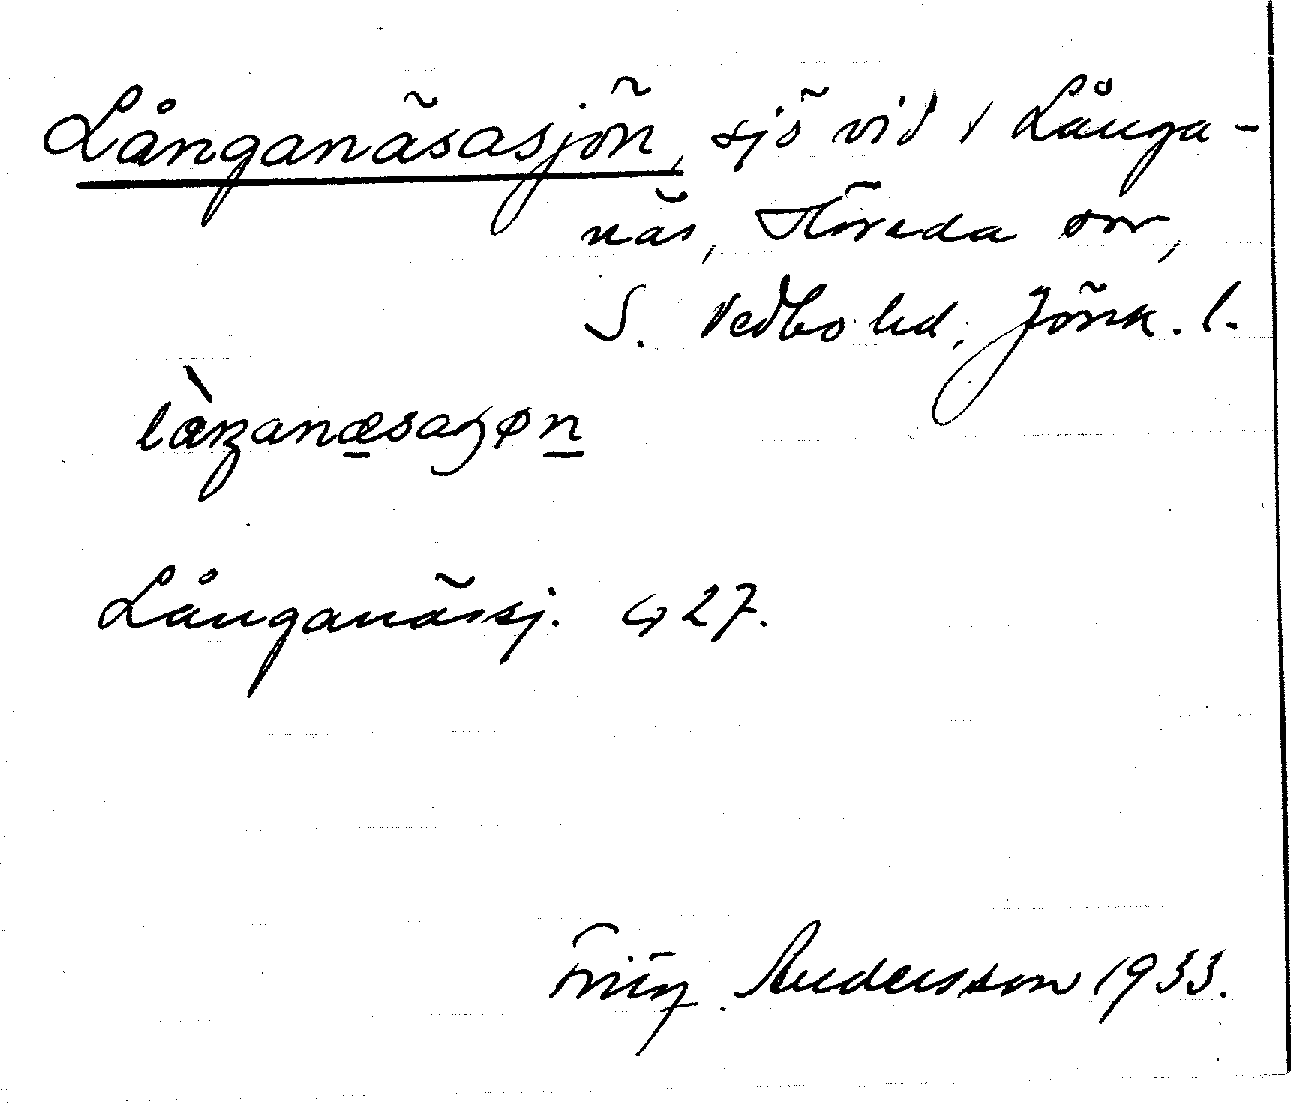 Långanäsasjön, sjö vid / Långa-
näs, Höreda sn,
S. Vedbo hd, Jönk. l.
Långanässj. G 27.
Fritz Andersson 1933.